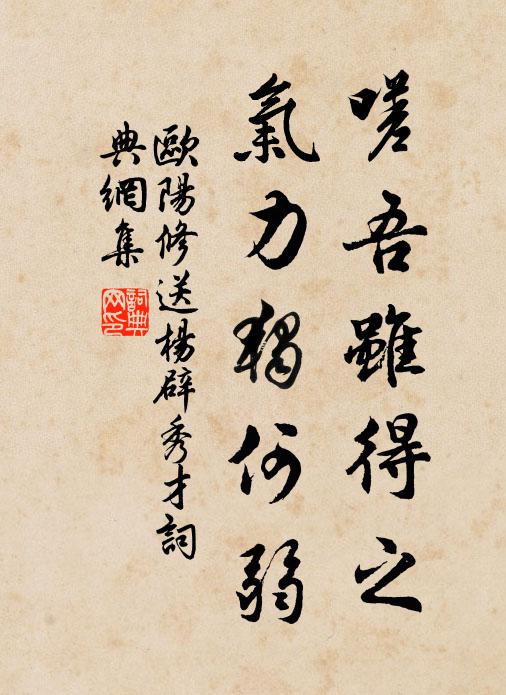 嗟吾雖得之
氣力獨何弱
歐陽修送楊辟秀才詞
典網集
詞典网印